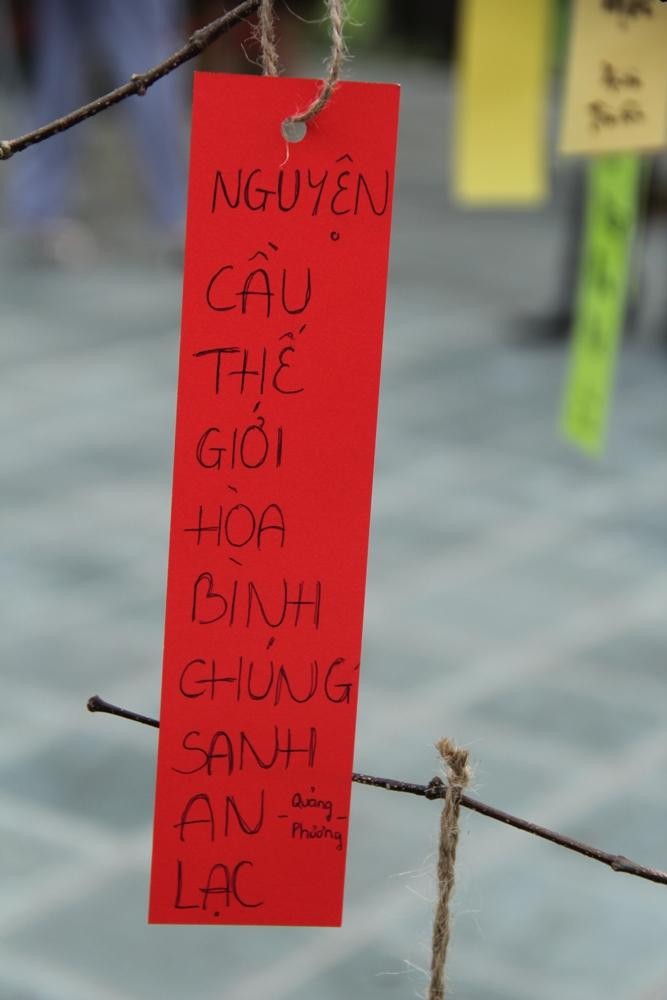 NGUYỆN
CẦU
THẾ
GIỚI
HÒA
BÌNH
CHÚNG
SANH
AN
- Quảng -
Phương
LẠC